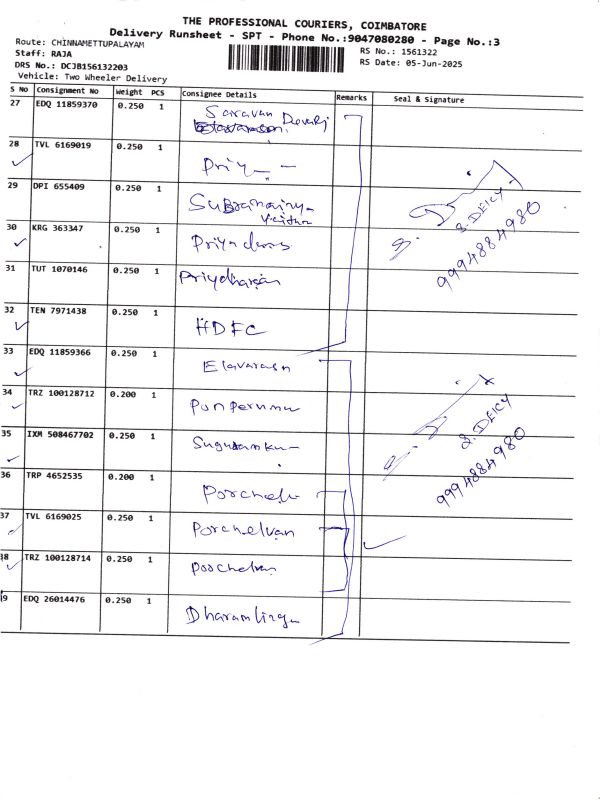 THE PROFESSIONAL COURIERS, COIMBATORE
Delivery Runsheet - SPT - Phone No.:9047080280 - Page No.:3
Route: CHINNAMETTUPALAYAM
Staff: RAJA
DRS No.: DCJB156132203
Vehicle: Two Wheeler Delivery
RS No.: 1561322
RS Date: 05-Jun-2025
S No Consignment No Weight PCS Consignee Details Remarks Seal & Signature
27 EDQ 11859370 0.250 1 Saravan Devaraj
28 TVL 6169019 0.250 1 Priya
29 DPI 655409 0.250 1
30 KRG 363347 0.250 1 Priyadars
31 TUT 1070146 0.250 1 Priydharsan
S. DEICY
9994884980
32 TEN 7971438 0.250 1 HDFC
33 EDQ 11859366 0.250 1 Elavarasn
34 TRZ 100128712 0.200 1
35 IXM 508467702 0.250 1
S. DEICY
9994884980
36 TRP 4652535 0.200 1 Porchelv
37 TVL 6169025 0.250 1 Porchelvan
38 TRZ 100128714 0.250 1 Poochelvan
9 EDQ 26014476 0.250 1 Dharamling